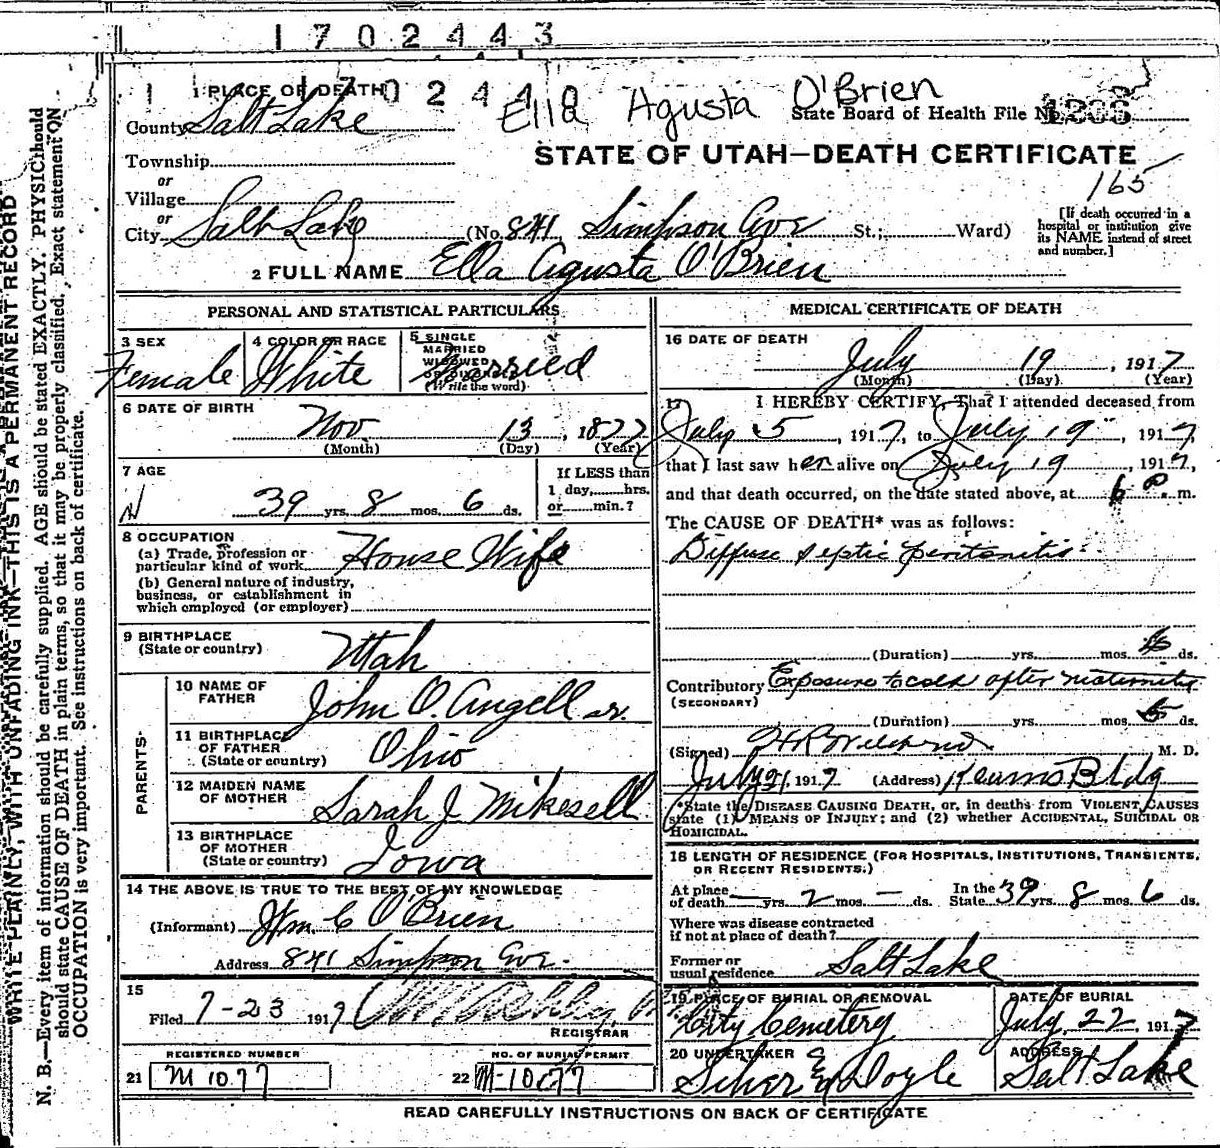 1702443
1 PLACE OF DEATH 02440 Ella Agusta O'Brien
County Salt Lake State Board of Health File No.
STATE OF UTAH—DEATH CERTIFICATE
Township
or
165
Village
or
City Salt Lake (No. 841 Simpson Ave St.; Ward)
[If death occurred in a
hospital or institution give
its NAME instead of street
and number.]
2 FULL NAME Ella Agusta O'Brien
PERSONAL AND STATISTICAL PARTICULARS
3 SEX
Female
4 COLOR OR RACE
White
5 SINGLE
MARRIED
WIDOWED
OR DIVORCED
(Write the word)
Married
6 DATE OF BIRTH
Nov 13, 1877
(Month) (Day) (Year)
7 AGE
39 yrs. 8 mos. 6 ds.
If LESS than
1 day, hrs.
or min.?
8 OCCUPATION
(a) Trade, profession or
particular kind of work House Wife
(b) General nature of industry,
business, or establishment in
which employed (or employer)
9 BIRTHPLACE
(State or country) Utah
PARENTS
10 NAME OF
FATHER John O. Angell sr.
11 BIRTHPLACE
OF FATHER
(State or country) Ohio
12 MAIDEN NAME
OF MOTHER Sarah J. Mikesell
13 BIRTHPLACE
OF MOTHER
(State or country) Iowa
14 THE ABOVE IS TRUE TO THE BEST OF MY KNOWLEDGE
(Informant) Wm. C O'Brien
Address 841 Simpson Ave.
15
Filed 7-23 1917
REGISTRAR
REGISTERED NUMBER
21 M 1077
NO. OF BURIAL PERMIT
22 M-1077
MEDICAL CERTIFICATE OF DEATH
16 DATE OF DEATH
July 19, 1917
(Month) (Day) (Year)
17 I HEREBY CERTIFY, That I attended deceased from
July 5, 1917, to July 19, 1917,
that I last saw her alive on July 19, 1917,
and that death occurred, on the date stated above, at 6 P. m.
The CAUSE OF DEATH* was as follows:
Diffuse septic peritonitis
(Duration) yrs. mos. ds.
Contributory Exposure to cold after maternity
(SECONDARY)
(Duration) yrs. mos. ds.
(Signed) M. D.
July 21, 1917 (Address) Kearns Bldg
*State the DISEASE CAUSING DEATH, or, in deaths from VIOLENT CAUSES
state (1) MEANS OF INJURY; and (2) whether ACCIDENTAL, SUICIDAL OR
HOMICIDAL.
18 LENGTH OF RESIDENCE (FOR HOSPITALS, INSTITUTIONS, TRANSIENTS,
OR RECENT RESIDENTS.)
At place
of death — yrs. 2 mos. — ds. In the State 39 yrs. 8 mos. 6 ds.
Where was disease contracted
if not at place of death?
Former or
usual residence Salt Lake
19 PLACE OF BURIAL OR REMOVAL
City Cemetery
DATE OF BURIAL
July 22, 1917
20 UNDERTAKER
Doyle
ADDRESS
Salt Lake
READ CAREFULLY INSTRUCTIONS ON BACK OF CERTIFICATE
WRITE PLAINLY, WITH UNFADING INK—THIS IS A PERMANENT RECORD
N. B.—Every item of information should be carefully supplied. AGE should be stated EXACTLY. PHYSICIANS should
should state CAUSE OF DEATH in plain terms, so that it may be properly classified. Exact statement ON
OCCUPATION is very important. See instructions on back of certificate.